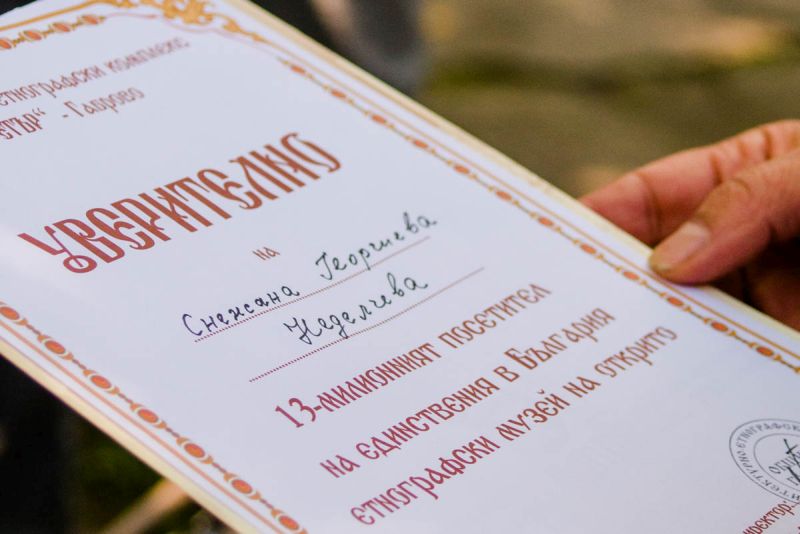 етнографски комплекс
ЕТЪР" - Габрово
УВЕРИТЕЛНО
на
Снежана Георгиева
Неделчева
13-милионният посетител
на единствения в България
етнографски музей на открито